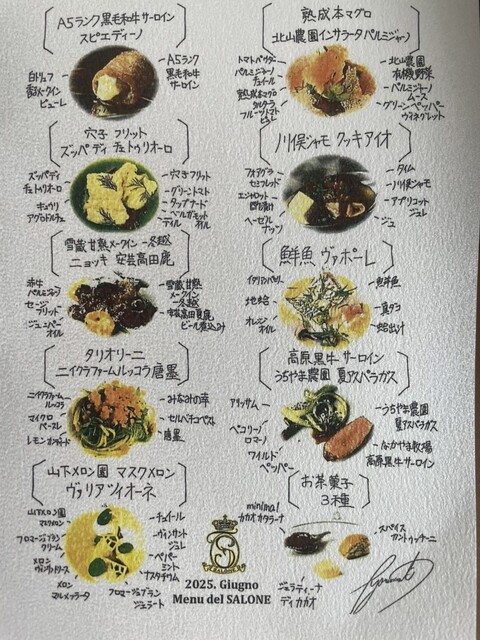 A5ランク黒毛和牛サーロイン
スピエディーノ
A5ランク
黒毛和牛
サーロイン
白トリュフ
メークイン
ピューレ
熟成本マグロ
北山農園インサラータ パルミジャーノ
トマトパウダー
パルミジャーノ
チュイール
熟成本マグロ
タルタラ
フルーツトマト
北山農園
有機野菜
パルミジャーノ
ムース
グリーンペッパー
ヴィネグレット
穴子 フリット
ズッパ ディ チェトゥリオーロ
ズッパディ
チェトゥリオーロ
キュウリ
アグロドルチェ
穴子フリット
グリーントマト
タップナード
ベルガモット
オイル
ディル
川俣シャモ クッキアイオ
フォアグラ
セミフレッド
エシャロット
ヘーゼル
ナッツ
タイム
川俣シャモ
アプリコット
ジュレ
ジュ
雪蔵甘熟メークイン 一冬越
ニョッキ 安芸高田鹿
赤牛
パルミジャーノ
セージ
フリット
ジュニパー
オイル
雪蔵甘熟
メークイン
一冬越
安芸高田夏鹿
ビール煮込み
鮮魚 ヴァポーレ
イタリアンパセリ
地蛤
オレンジ
オイル
鮮魚
真ダコ
蛤出汁
タリオリーニ
ニイクラファームルッコラ 唐墨
ニイクラファーム
ルッコラ
マイクロ
ベースル
レモンオイル
みなみの幸
セルバチコペースト
唐墨
高原黒牛 サーロイン
うちやま農園 夏アスパラガス
アリッサム
ペコリーノ
ロマーノ
ワイルド
ペッパー
うちやま農園
夏アスパラガス
なかやま牧場
高原黒牛サーロイン
山下メロン園 マスクメロン
ヴァリアツィオーネ
山下メロン園
マスクメロン
フロマージュブラン
クリーム
メロン
メロン
マルメッラータ
フロマージュブラン
ジェラート
チュイール
ヴィンサント
ジュレ
ペパー
ミント
ナスタチウム
お茶菓子
3種
minimal
カカオカタラーナ
スペイス
カントゥッチーニ
ジェラティーナ
ディカカオ
S
SALONE
2025. Giugno
Menu del SALONE